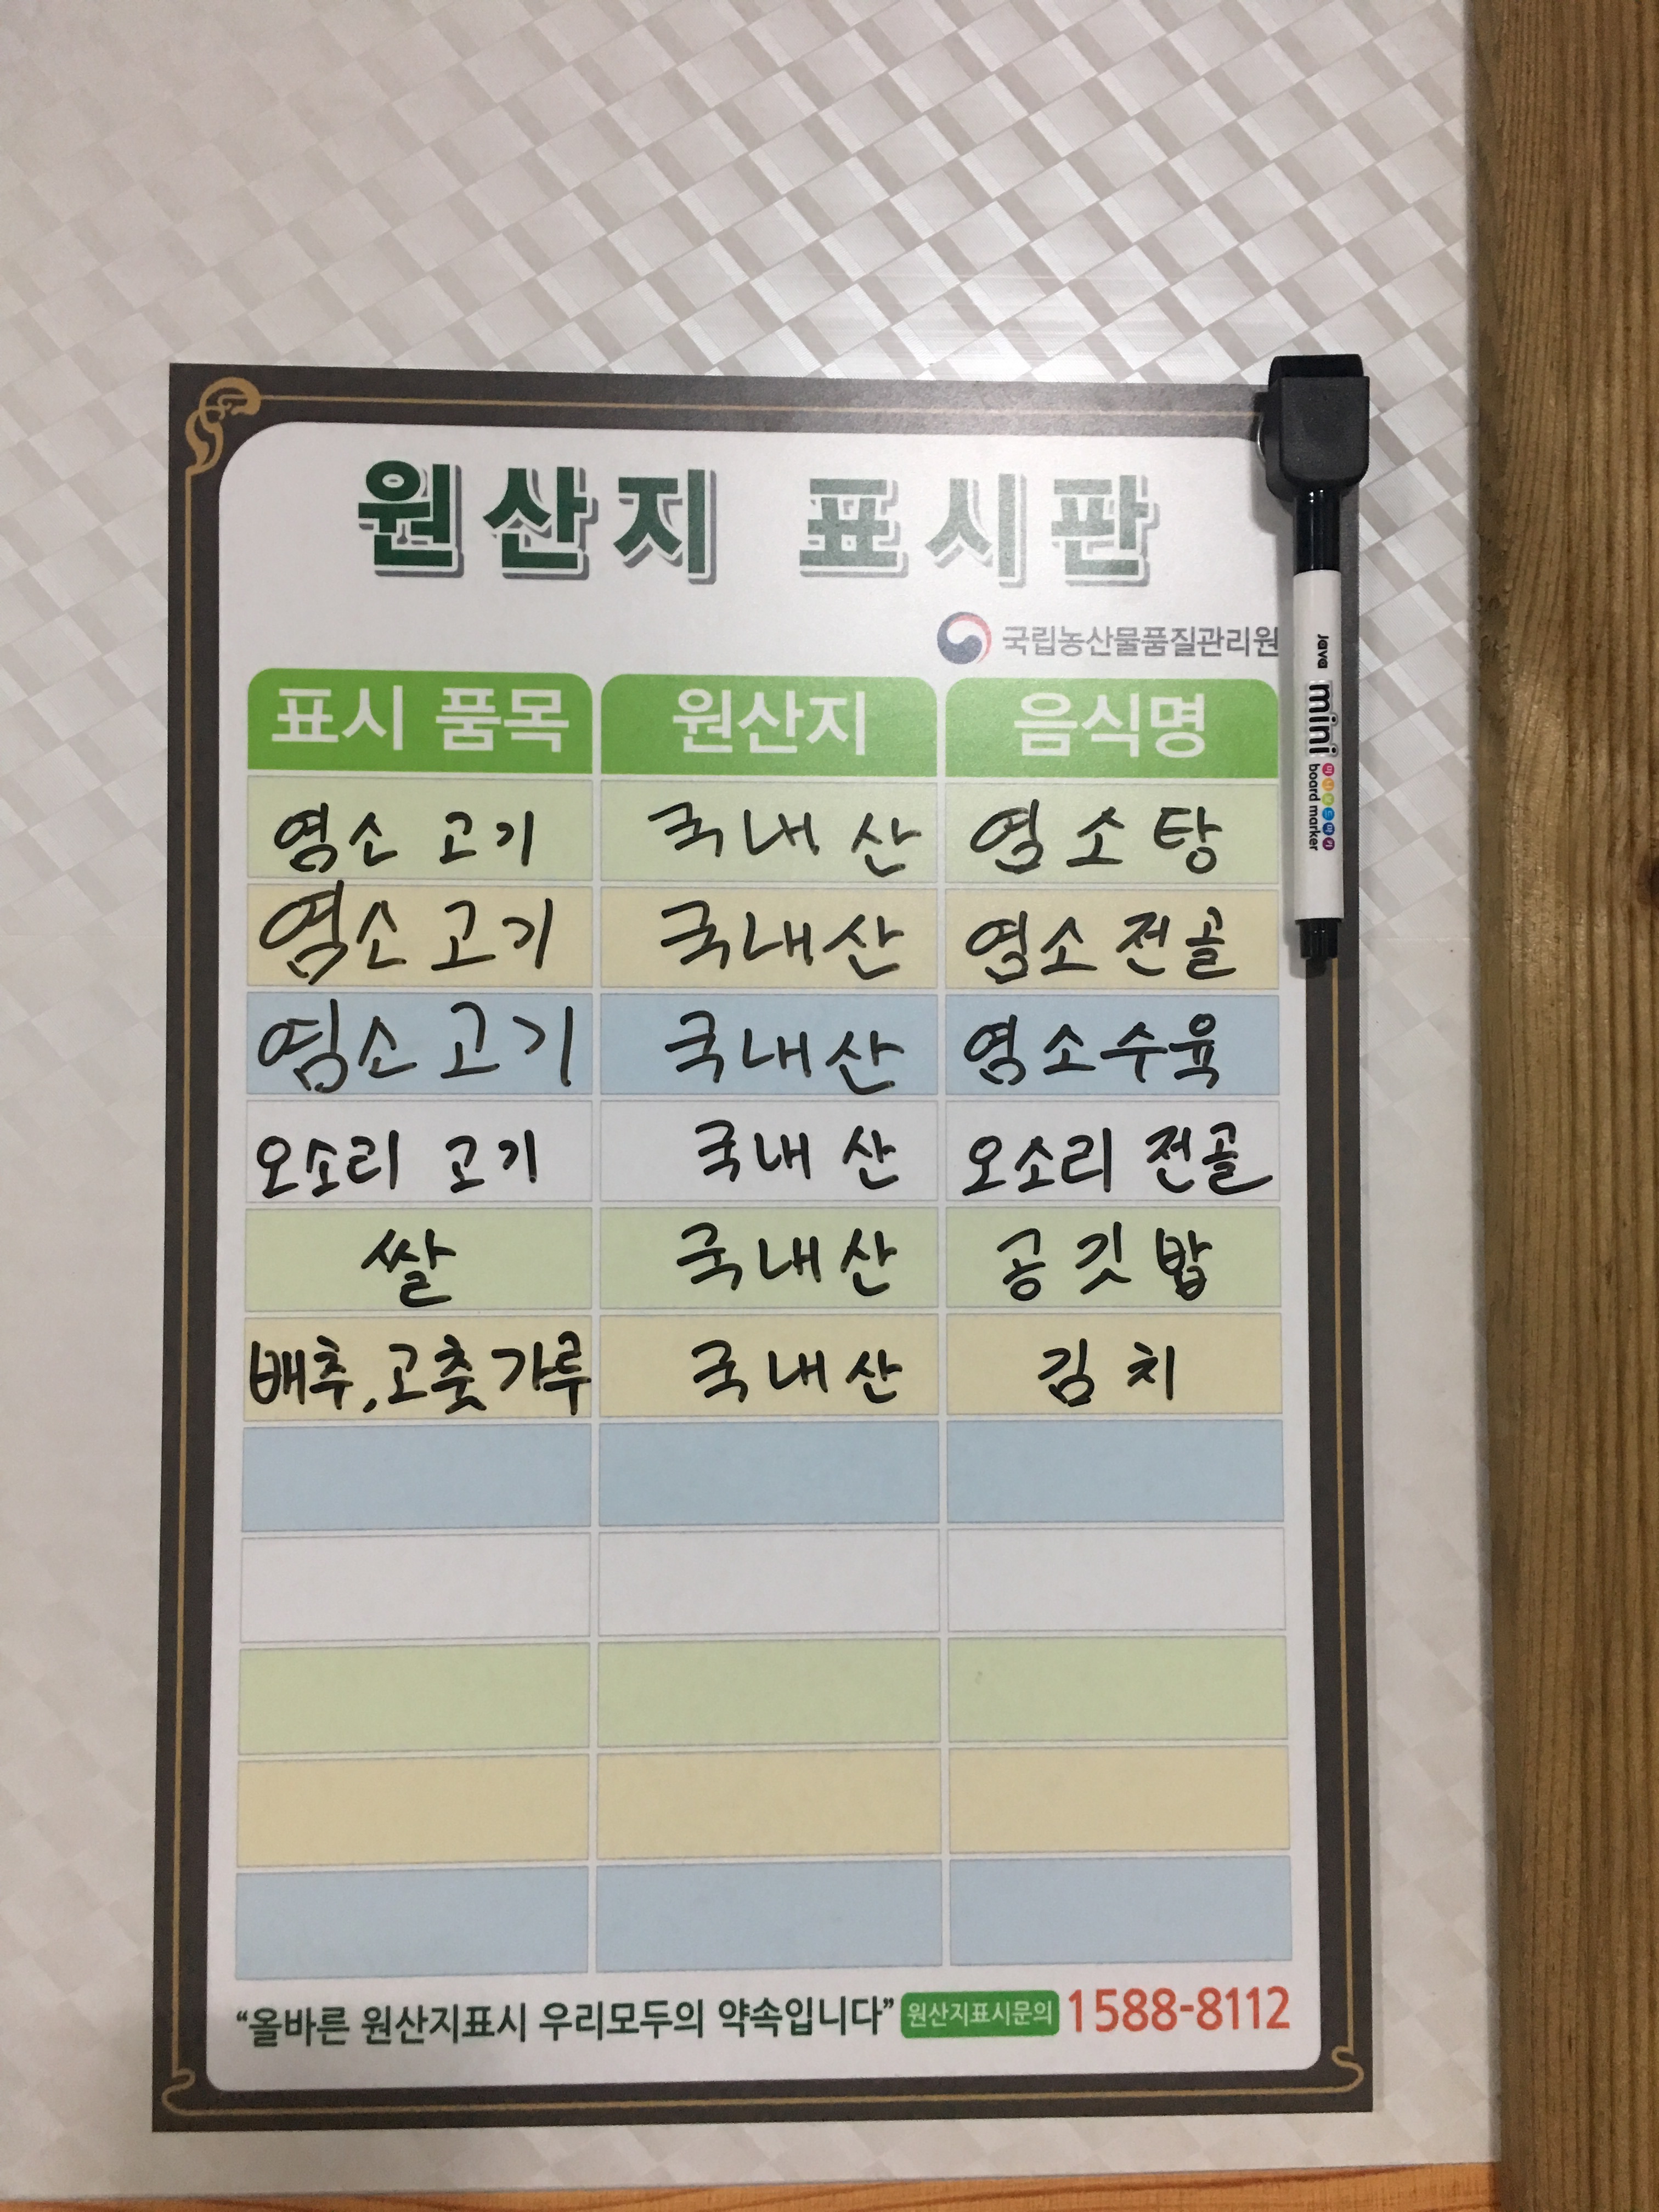 원산지 표시판
국립농산물품질관리원
표시 품목 원산지 음식명
염소 고기 국내산 염소탕
염소고기 국내산 염소전골
염소고기 국내산 염소수육
오소리 고기 국내산 오소리 전골
쌀 국내산 공깃밥
배추,고춧가루 국내산 김치
"올바른 원산지표시 우리모두의 약속입니다" 원산지표시문의 1588-8112
Java mini board marker